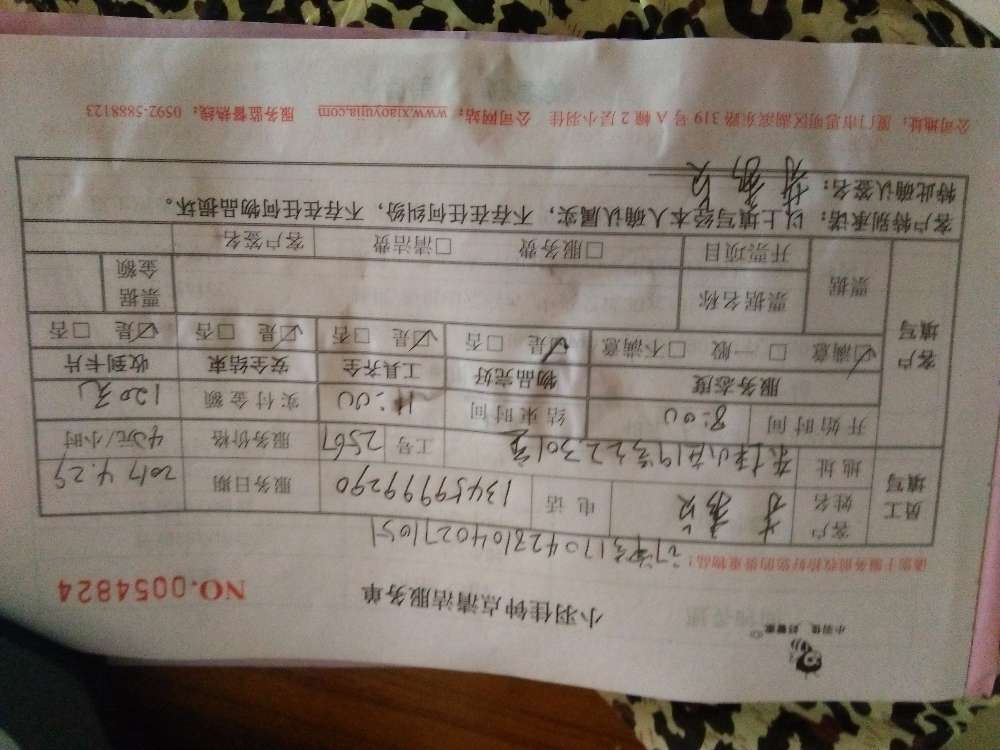 小羽佳 好管家
小羽佳钟点清洁服务单
NO.0054824
请您于服务前收拾好您的贵重物品!
订单号170423104027105
员工填写 客户姓名 电话 13459999290 服务日期 2017.4.29
地址 19号之2 301室 工号 2567 服务价格 40元/小时
开始时间 8:00 结束时间 11:00 实付金额 120元
客户填写 服务态度 物品完好 工具齐全 安全结束 收到卡片
☑满意 □一般 □不满意 ☑是 □否 ☑是 □否 ☑是 □否 ☑是 □否
票据 票据名称 票据金额
开票项目 □服务费 □清洁费 客户签名
客户特别承诺：以上填写经本人确认属实，不存在任何纠纷，不存在任何物品损坏。
特此确认签名：
公司地址：厦门市思明区湖滨东路319号A幢2层小羽佳 公司网站：www.xiaoyujia.com 服务监督热线：0592-5888123